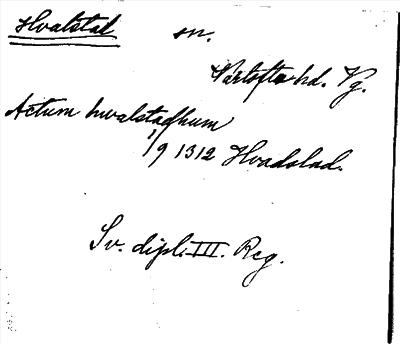 Hvalstad sn.
Vartofta hd. Vg.
Actum hwalstadhum
1/9 1312 Hvadstad.
Sv. dipl. III. Reg.